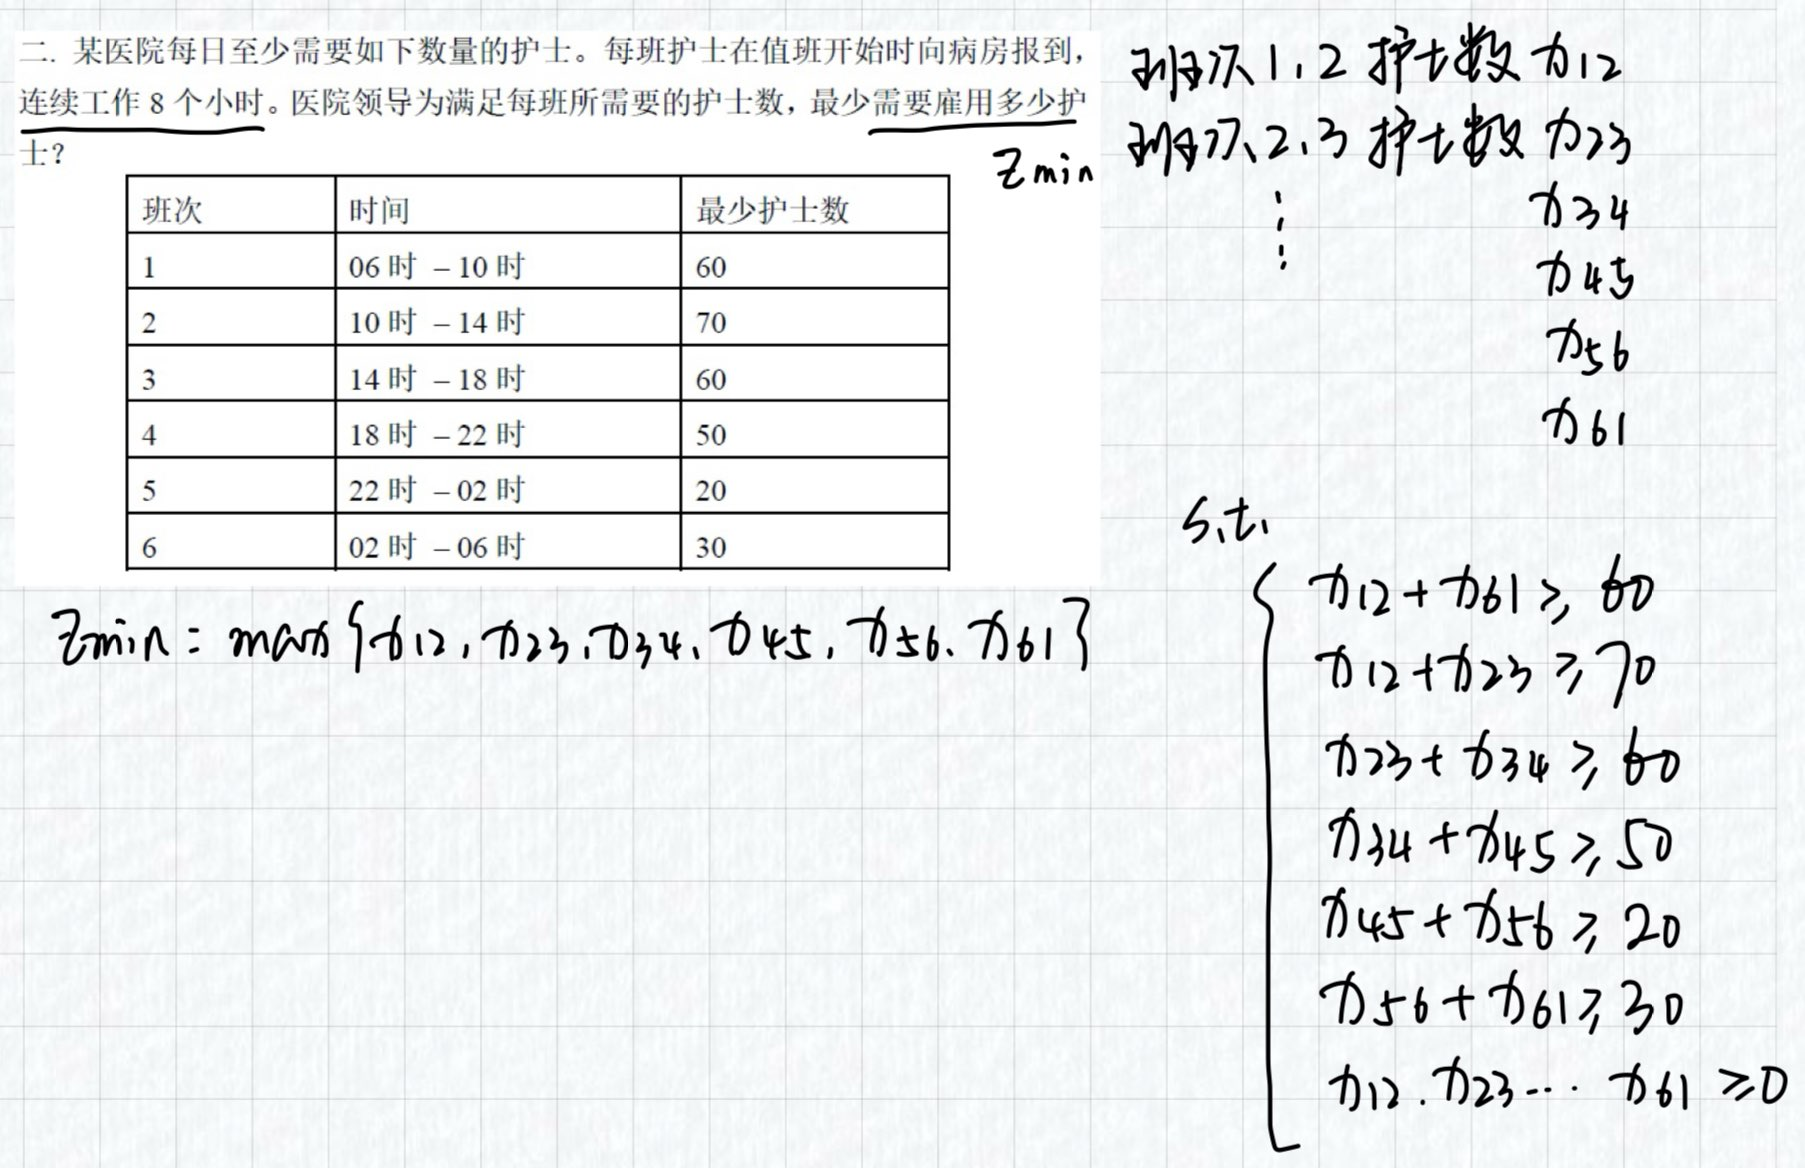 二. 某医院每日至少需要如下数量的护士。每班护士在值班开始时向病房报到，
连续工作 8 个小时。医院领导为满足每班所需要的护士数，最少需要雇用多少护
士？
Zmin
班次 时间 最少护士数
1 06 时 – 10 时 60
2 10 时 – 14 时 70
3 14 时 – 18 时 60
4 18 时 – 22 时 50
5 22 时 – 02 时 20
6 02 时 – 06 时 30
Zmin = max {x12, x23, x34, x45, x56, x61}
班次 1、2 护士数 x12
班次 2、3 护士数 x23
⋮ x34
x45
x56
x61
s.t.
x12 + x61 ≥ 60
x12 + x23 ≥ 70
x23 + x34 ≥ 60
x34 + x45 ≥ 50
x45 + x56 ≥ 20
x56 + x61 ≥ 30
x12. x23 ... x61 ≥ 0